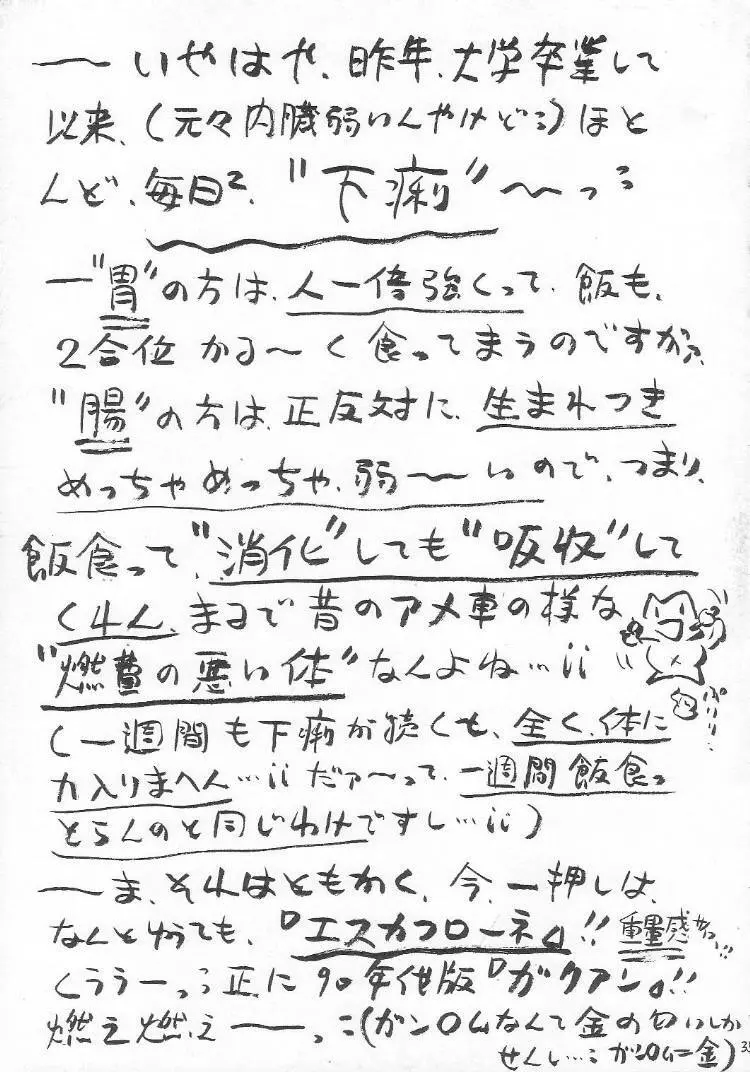 ――いやはや、昨年、大学卒業して
以来、(元々内臓弱いんやけど…)ほと
んど、毎日²、"下痢"〜〜っ…
―"胃"の方は、人一倍強くって、飯も、
2合位かる〜く食ってまうのですがァ、
"腸"の方は、正反対に、生まれつき
めっちゃめっちゃ、弱〜〜いので、つまり、
飯食って、"消化"しても"吸収"して
くれん、まるで昔のアメ車の様な
"燃費の悪い体"なんよね…¡¡
ぷりり…
(一週間も下痢が続くと、全く、体に
力入りまへん…¡¡だァ〜って、一週間飯食っ
とらんのと同じわけですし…¡¡)
――ま、それはともかく、今、一押しは、
なんと゛っても、『エスカフローネ』!! 重量感
くううーっ…正に90年代版『ガ
燃え燃え――っ…(ガンダムなんて金の匂いしか
せんし… ガンダム=金)